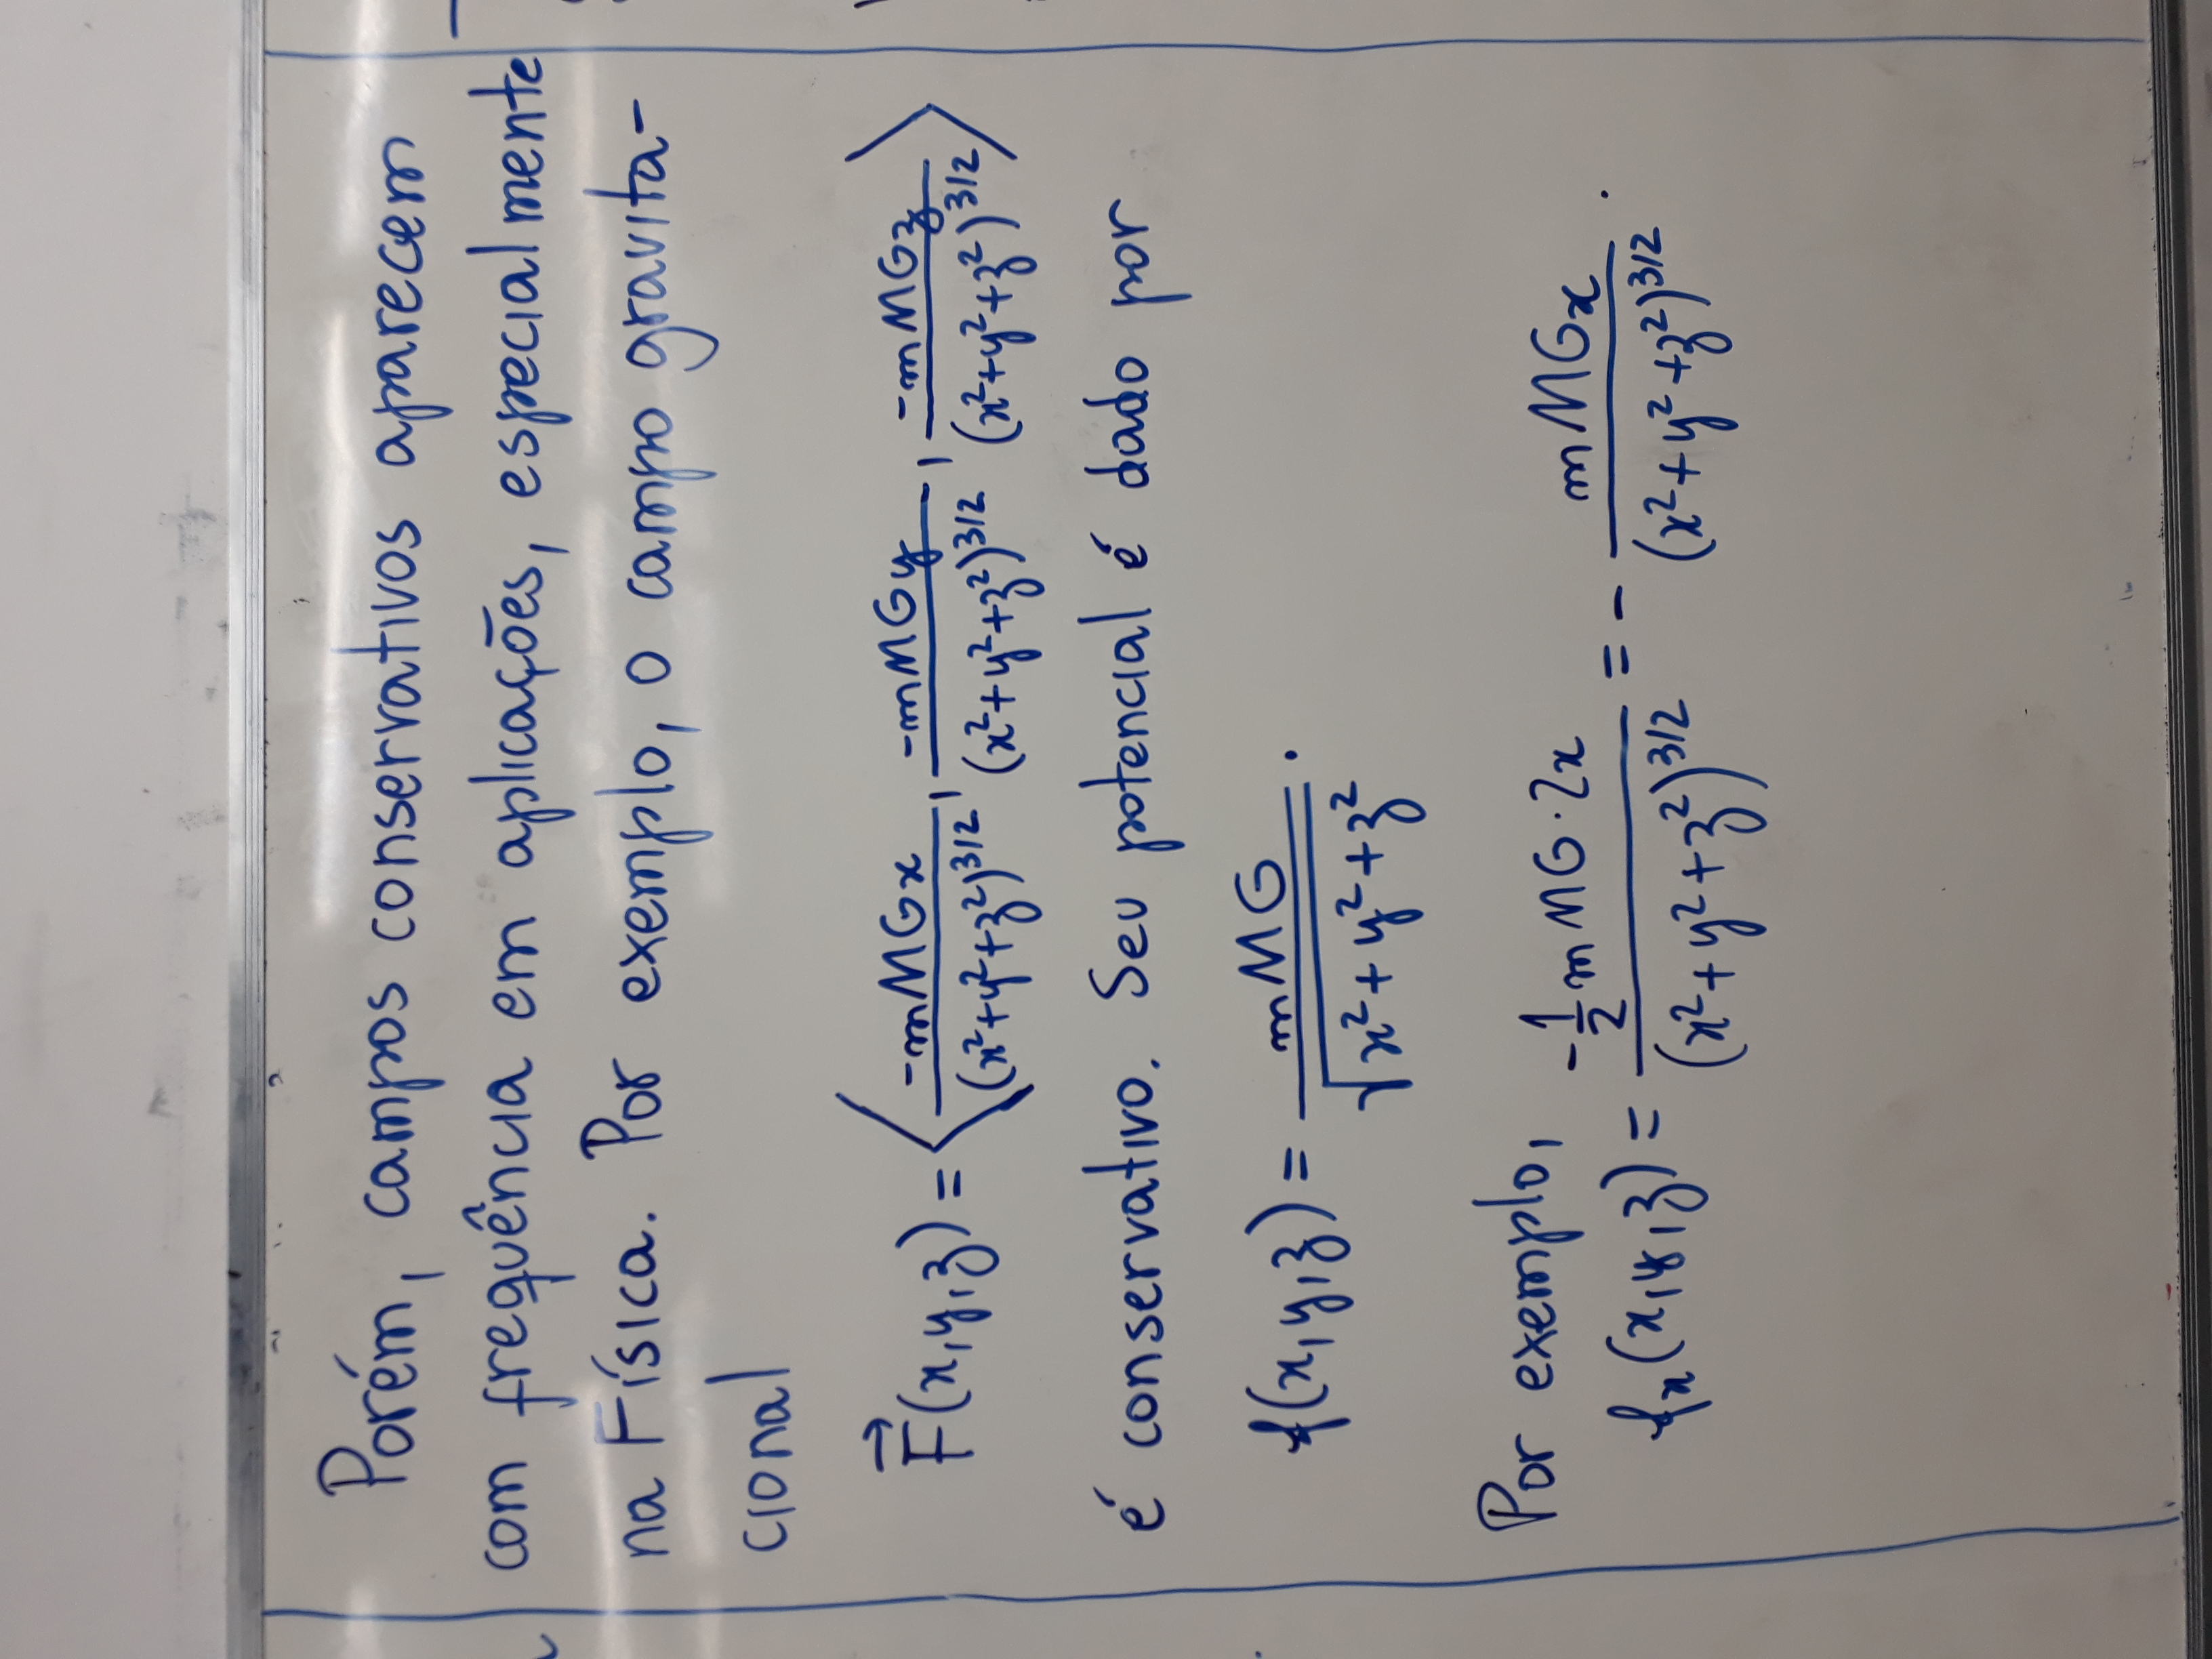 Porém, campos conservativos aparecem
com frequência em aplicações, especialmente
na Física. Por exemplo, o campo gravita-
cional
F⃗(x,y,z) = ⟨ -mMGx/(x²+y²+z²)^3/2 , -mMGy/(x²+y²+z²)^3/2 , -mMGz/(x²+y²+z²)^3/2 ⟩
é conservativo. Seu potencial é dado por
f(x,y,z) = mMG/√(x²+y²+z²) .
Por exemplo,
fₓ(x,y,z) = -1/2 mMG·2x/(x²+y²+z²)^3/2 = - mMGx/(x²+y²+z²)^3/2 .